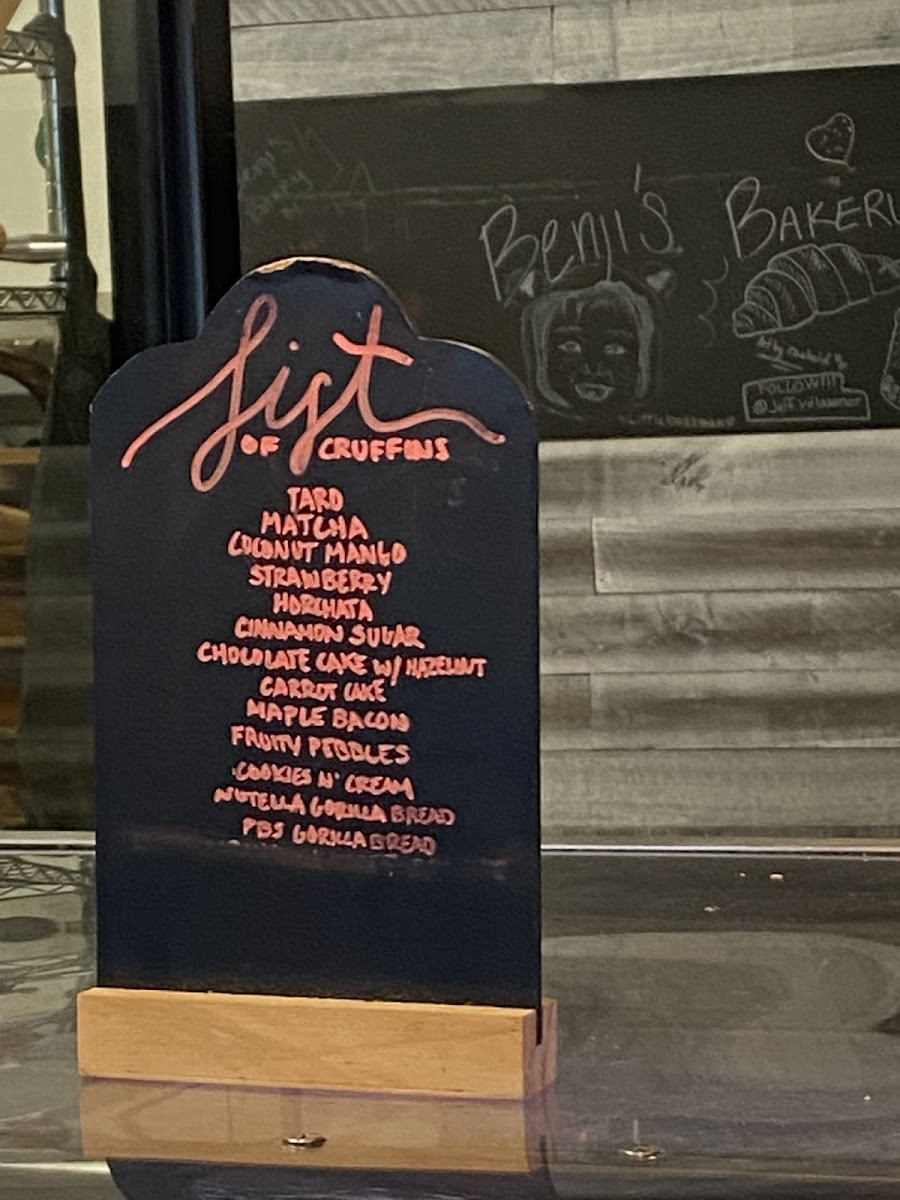 List
OF CRUFFINS
TARO
MATCHA
COCONUT MANGO
STRAWBERRY
HORCHATA
CINNAMON SUGAR
CHOCOLATE CAKE W/ HAZELNUT
CARROT CAKE
MAPLE BACON
FRUITY PEBBLES
COOKIES N' CREAM
NUTELLA GORILLA BREAD
PBJ GORILLA BREAD
Benji's BAKERY
FOLLOW